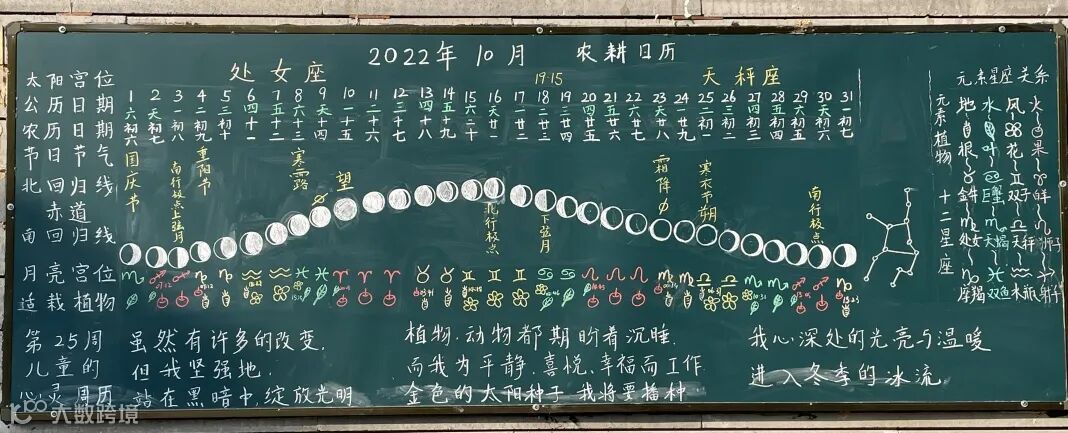 2022年 10月 农耕日历
处女座 19·15 天秤座
太阳宫位
公历日期 1 2 3 4 5 6 7 8 9 10 11 12 13 14 15 16 17 18 19 20 21 22 23 24 25 26 27 28 29 30 31
六 天 一 二 三 四 五 六 天 一 二 三 四 五 六 天 一 二 三 四 五 六 天 一 二 三 四 五 六 天 一
农历日期 初六 初七 初八 初九 初十 十一 十二 十三 十四 十五 十六 十七 十八 十九 二十 廿一 廿二 廿三 廿四 廿五 廿六 廿七 廿八 廿九 初一 初二 初三 初四 初五 初六 初七
节日节气 国庆节 南行极点 上弦月 重阳节 寒露 望 北行极点 下弦月 霜降 寒衣节 朔 南行极点
北回归线
赤道
南回归线
月亮宫位
适栽植物
元素星座关系
元素植物
地 水 风 火
根 叶 花 果
十二星座
金牛 巨蟹 双子 白羊
处女 天蝎 天秤 狮子
摩羯 双鱼 水瓶 射手
第25周
儿童的
心灵周历
虽然有许多的改变,
但我坚强地.
站在黑暗中,绽放光明
植物.动物都期盼着沉睡.
而我为平静.喜悦.幸福而工作
金色的太阳种子 我将要播种
我心深处的光亮与温暖
进入冬季的冰流
大数跨境